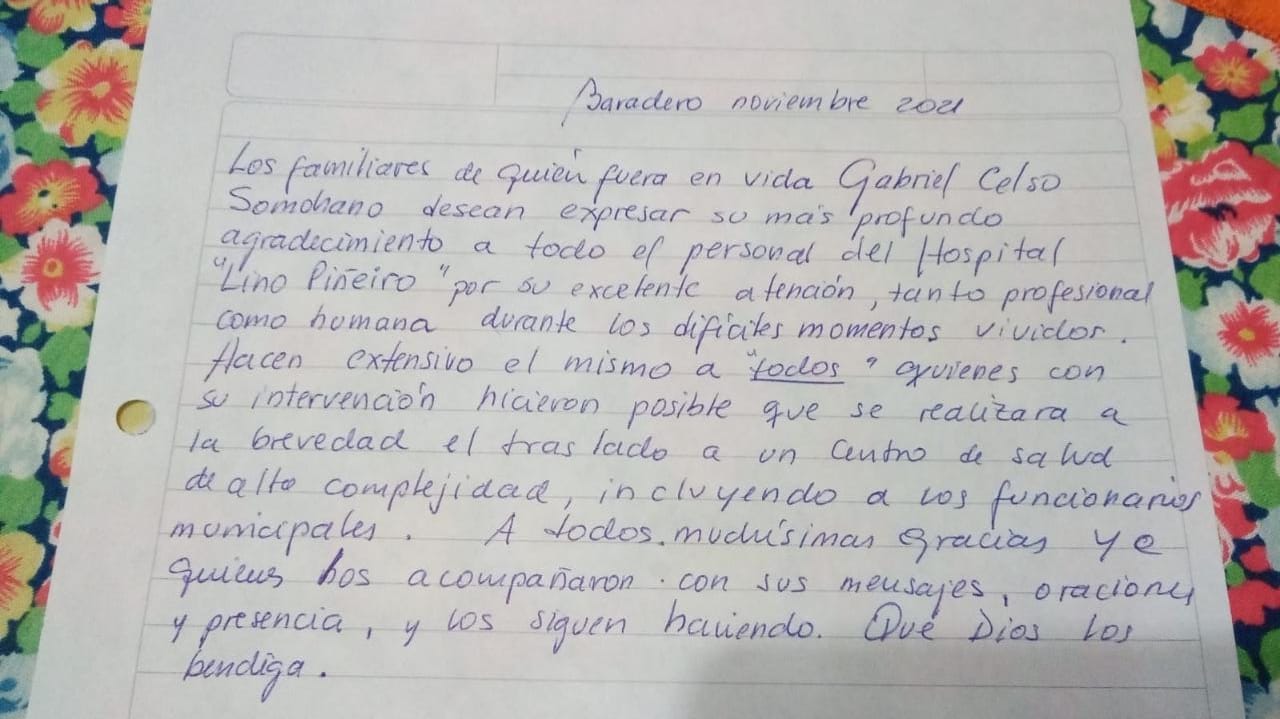 Baradero noviembre 2021
Los familiares de quién fuera en vida Gabriel Celso
Somohano desean expresar su más profundo
agradecimiento a todo el personal del Hospital
"Lino Piñeiro" por su excelente atención, tanto profesional
como humana durante los difíciles momentos vividos.
Hacen extensivo el mismo a "todos" quienes con
su intervención hicieron posible que se realizara a
la brevedad el traslado a un centro de salud
de alta complejidad, incluyendo a los funcionarios
municipales. A todos, muchísimas gracias y a
quienes nos acompañaron con sus mensajes, oraciones
y presencia, y los siguen haciendo. Que Dios los
bendiga.